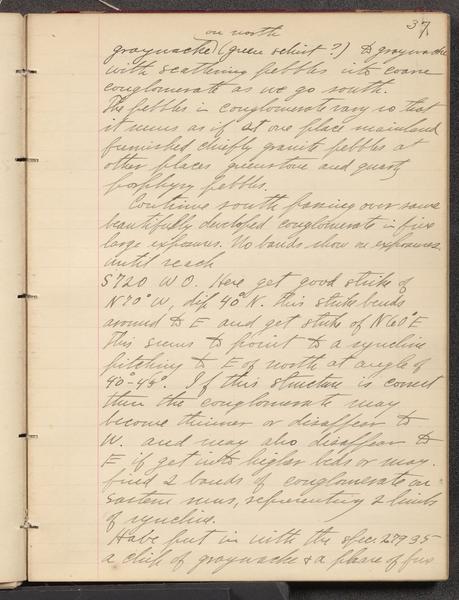 37.
on north
graywacke (green schist?) to graywacke
with scattering pebbles into coarse
conglomerate as we go south.
The pebbles in conglomerate vary so that
it seems as if at one place mainland
furnished chiefly granite pebbles at
other places greenstone and quartz
porphyry pebbles.
Continue south passing over same
beautifully developed conglomerate in fine
large exposures. No bands show on exposures
until reach
S720 W0. Here get good strike of
N70°W, dip 40°N. This strike bends
around to E and get strike of N60°E
This seems to point to a syncline
pitching to E of north at angle of
40°-45°. If this structure is correct
then the conglomerate may
become thinner or disappear to
W. and may also disappear to
E if get into higher beds or may
find 2 bands of conglomerate on
eastern runs, representing 2 limbs
of syncline.
Have put in with the spec 27935
a chip of graywacke & a phase of